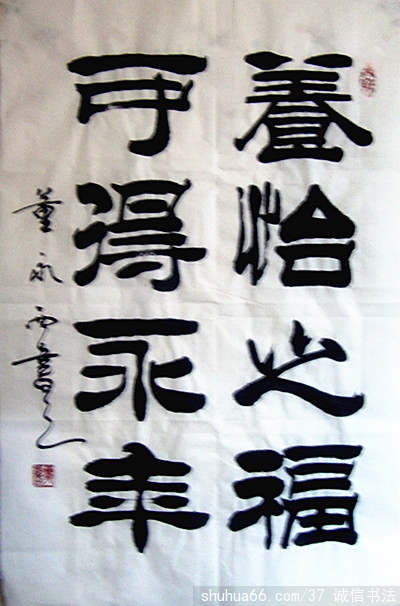 養怡之福
可得永年
董永西書
shuhua66.com/37 诚信书法